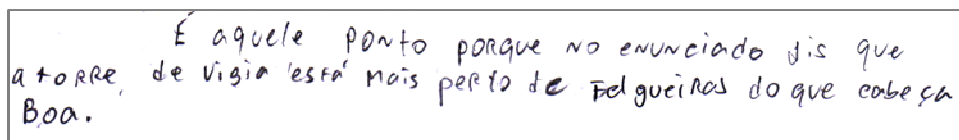 É aquele ponto porque no enunciado dis que
a torre, de vigia está mais perto de Felgueiras do que cabeça
Boa.